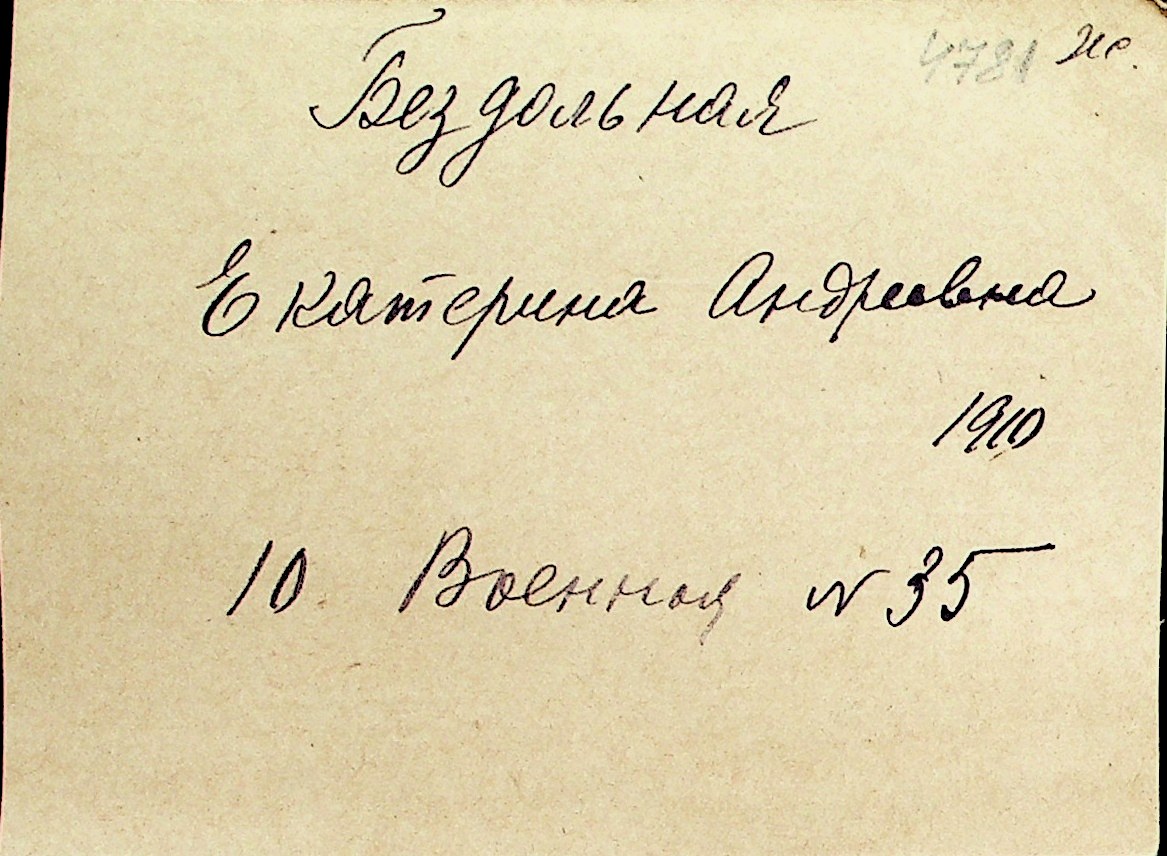 4781
Бездольная
Екатерина Андреевна
1910
10 Военная N 35